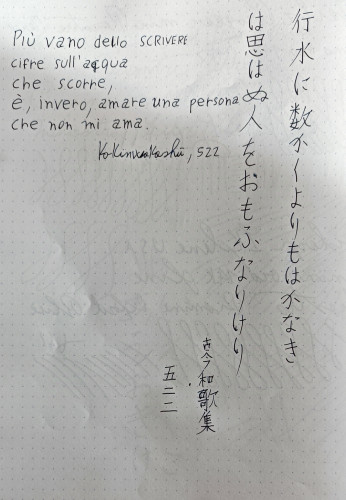 Più vano dello SCRIVERE
cifre sull'acqua
che scorre,
è, invero, amare una persona
che non mi ama.
Kokinwakashū, 522
行水に数かくよりもはかなき
は思はぬ人をおもふなりけり
古今和歌集
五二二